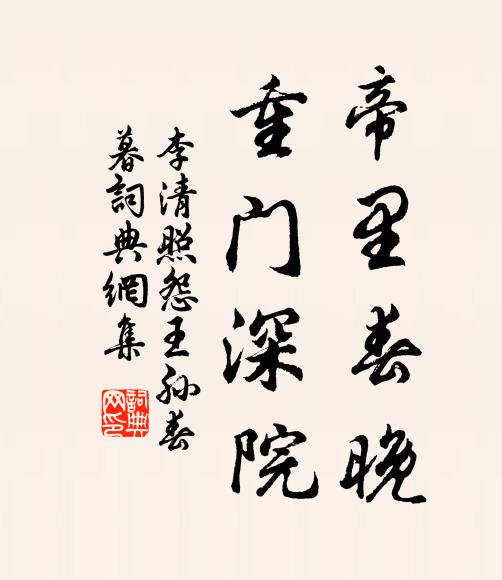 帝里春晚
重门深院
李清照怨王孙春
暮詞典網集
詞典
网印